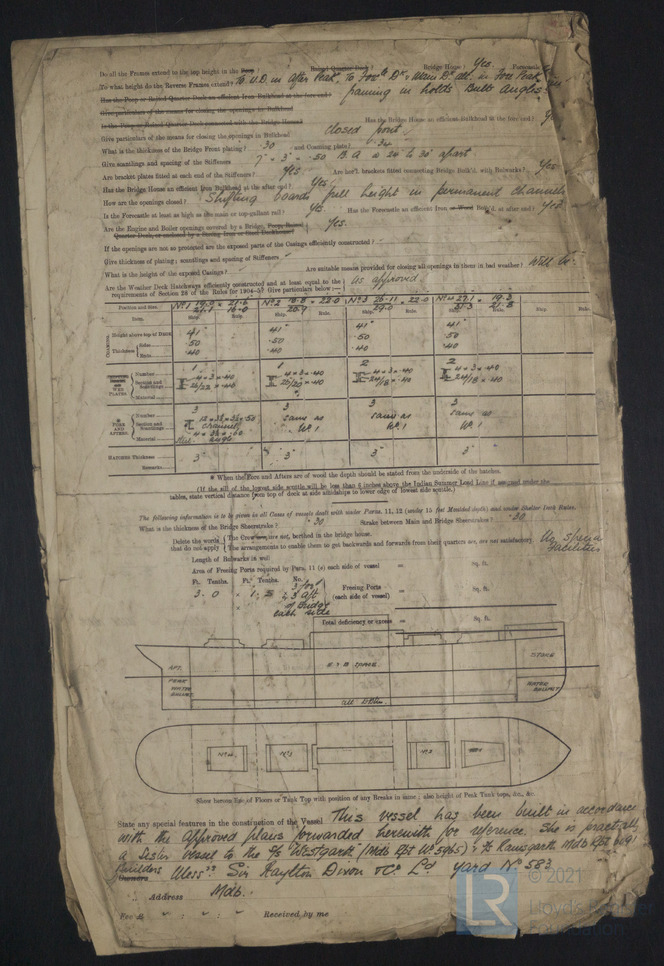 Do all the Frames extend to the top height in the Poop? Raised Quarter Deck? Bridge House? Yes. Forecastle
To what height do the Reverse Frames extend? To U.D. in After Peak, To Main Dk all in Fore Peak
framing in holds Bulb Angles
Has the Poop or Raised Quarter Deck an efficient Iron Bulkhead at the fore end?
Give particulars of the means for closing the openings in Bulkhead
Is the Poop or Raised Quarter Deck connected with the Bridge House? Has the Bridge House an efficient Bulkhead at the fore end?
Give particulars of the means for closing the openings in Bulkhead closed front
What is the thickness of the Bridge Front plating? .30 and Coaming plate? .34
Give scantlings and spacing of the Stiffeners 7" × 3" × .50 B.A. @ 24 to 30" apart
Are bracket plates fitted at each end of the Stiffeners? Yes Are hor'l. brackets fitted connecting Bridge Bulk'd. with Bulwarks? Yes
Has the Bridge House an efficient Iron Bulkhead at the after end? Yes
How are the openings closed? Shifting boards full height in permanent channels
Is the Forecastle at least as high as the main or top-gallant rail? Yes. Has the Forecastle an efficient Iron or Wood Bulk'd. at after end? Yes
Are the Engine and Boiler openings covered by a Bridge, Poop, Raised Quarter Deck, or enclosed by a Strong Iron or Steel Deckhouse? Yes.
If the openings are not so protected are the exposed parts of the Casings efficiently constructed?
Give thickness of plating; scantlings and spacing of Stiffeners
What is the height of the exposed Casings? Are suitable means provided for closing all openings to them in bad weather?
Are the Weather Deck Hatchways efficiently constructed and at least equal to the requirements of Section 28 of the Rules for 1904-5? Give particulars below:— as approved
Position and Size. No 1 No 2 No 3 No 4
Item. Ship. Rule. Ship. Rule. Ship. Rule. Ship. Rule.
COAMINGS. Height above top of DECK 41" 41" 41" 41"
Thickness Sides .50 .50 .50 .50
Ends .40 .40 .40 .40
WEB PLATES Number 1 1 2 2
Section and Scantlings 4 × 3 × .40 4 × 3 × .40 4 × 3 × .40 4 × 3 × .40
Material
* FORE AND AFTERS Number 3 3 3 3
Section and Scantlings channels same as No. 1 same as No. 1 same as No. 1
Material
HATCHES Thickness 3" 3" 3" 3"
Remarks.
* When the Fore and Afters are of wood the depth should be stated from the underside of the hatches.
(If the sill of the lowest side scuttle will be less than 6 inches above the Indian Summer Load Line if assigned under the
tables, state vertical distance from top of deck at side amidships to lower edge of lowest side scuttle.)
The following information is to be given in all Cases of vessels dealt with under Paras. 11, 12 (under 15 feet Moulded depth) and under Shelter Deck Rules.
What is the thickness of the Bridge Sheerstrake? .30 Strake between Main and Bridge Sheerstrakes? .30
Delete the words that do not apply { The Crew are, are not, berthed in the bridge house.
The arrangements to enable them to get backwards and forwards from their quarters are, are not satisfactory
Length of Bulwarks in well
Area of Freeing Ports required by Para. 11 (e) each side of vessel = Sq. ft.
Ft. Tenths. Ft. Tenths. No.
3 . 0 × 1 . 5 3 for'd 3 aft of Bridge each side
Freeing Ports (each side of vessel) = Sq. ft.
Total deficiency or excess = Sq. ft.
AFT. PEAK WATER BALLAST
E & B SPACE
STORE
WATER BALLAST
all DBtm
No 4 No 3 No 2 No 1
Show hereon line of Floors or Tank Top with position of any Breaks in same; also height of Peak Tank tops, &c., &c.
State any special features in the construction of the Vessel This vessel has been built in accordance
with the Approved plans forwarded herewith for reference. She is practically
a Sister vessel to the S/S Westgarth (Mdb Rpt No 5965) & To Ramsgarth Mdb Rpt
Builders Owners Messrs Sir Raylton Dixon & Co Ld. Yard No 583
Address Mdb.
Fee £ : : Received by me
© 2021
Lloyd's Register
Foundation
LR